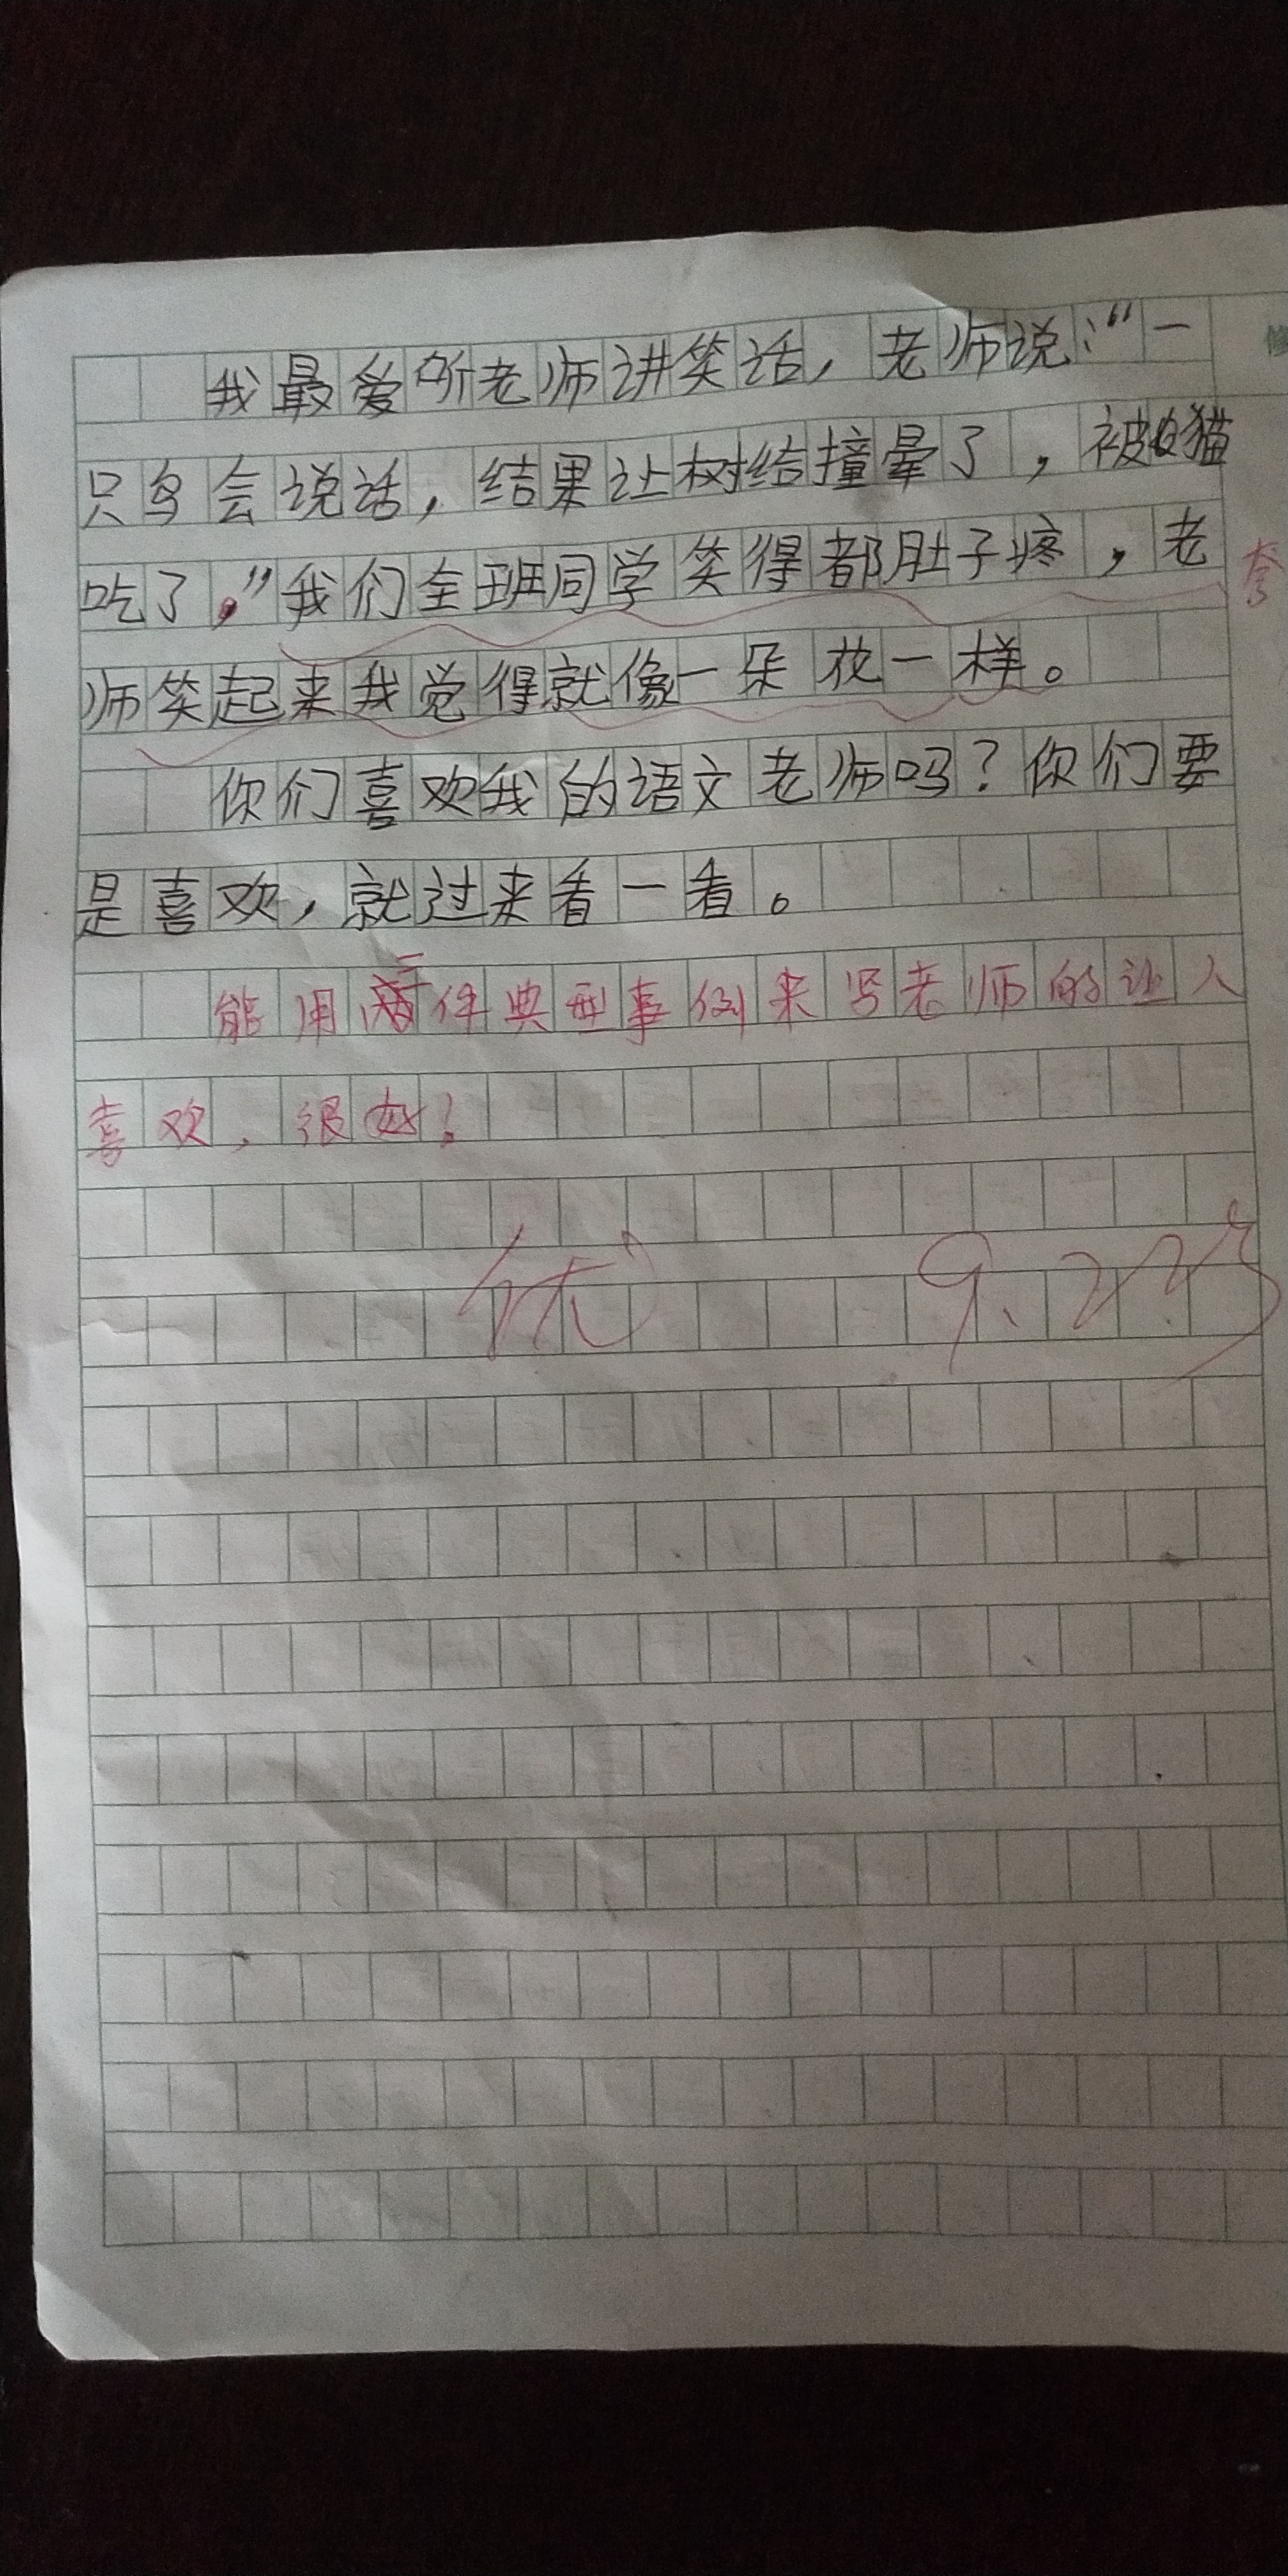 我最爱听老师讲笑话，老师说：“一
只鸟会说话，结果让树给撞晕了，被猫
吃了。”我们全班同学笑得都肚子疼，老
师笑起来我觉得就像一朵花一样。
你们喜欢我的语文老师吗？你们要
是喜欢，就过来看一看。
能用三件典型事例来写老师的让人
喜欢，很好！
优 9.23